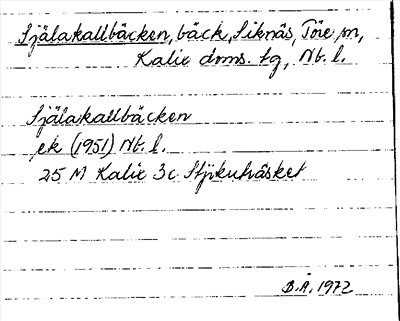 Själakallbäcken, bäck, Siknäs, Töre sn,
Kalix doms. tg, Nb. l.
Själakallbäcken
ek (1951) Nb. l.
25 M Kalix 3c
B.Å. 1972